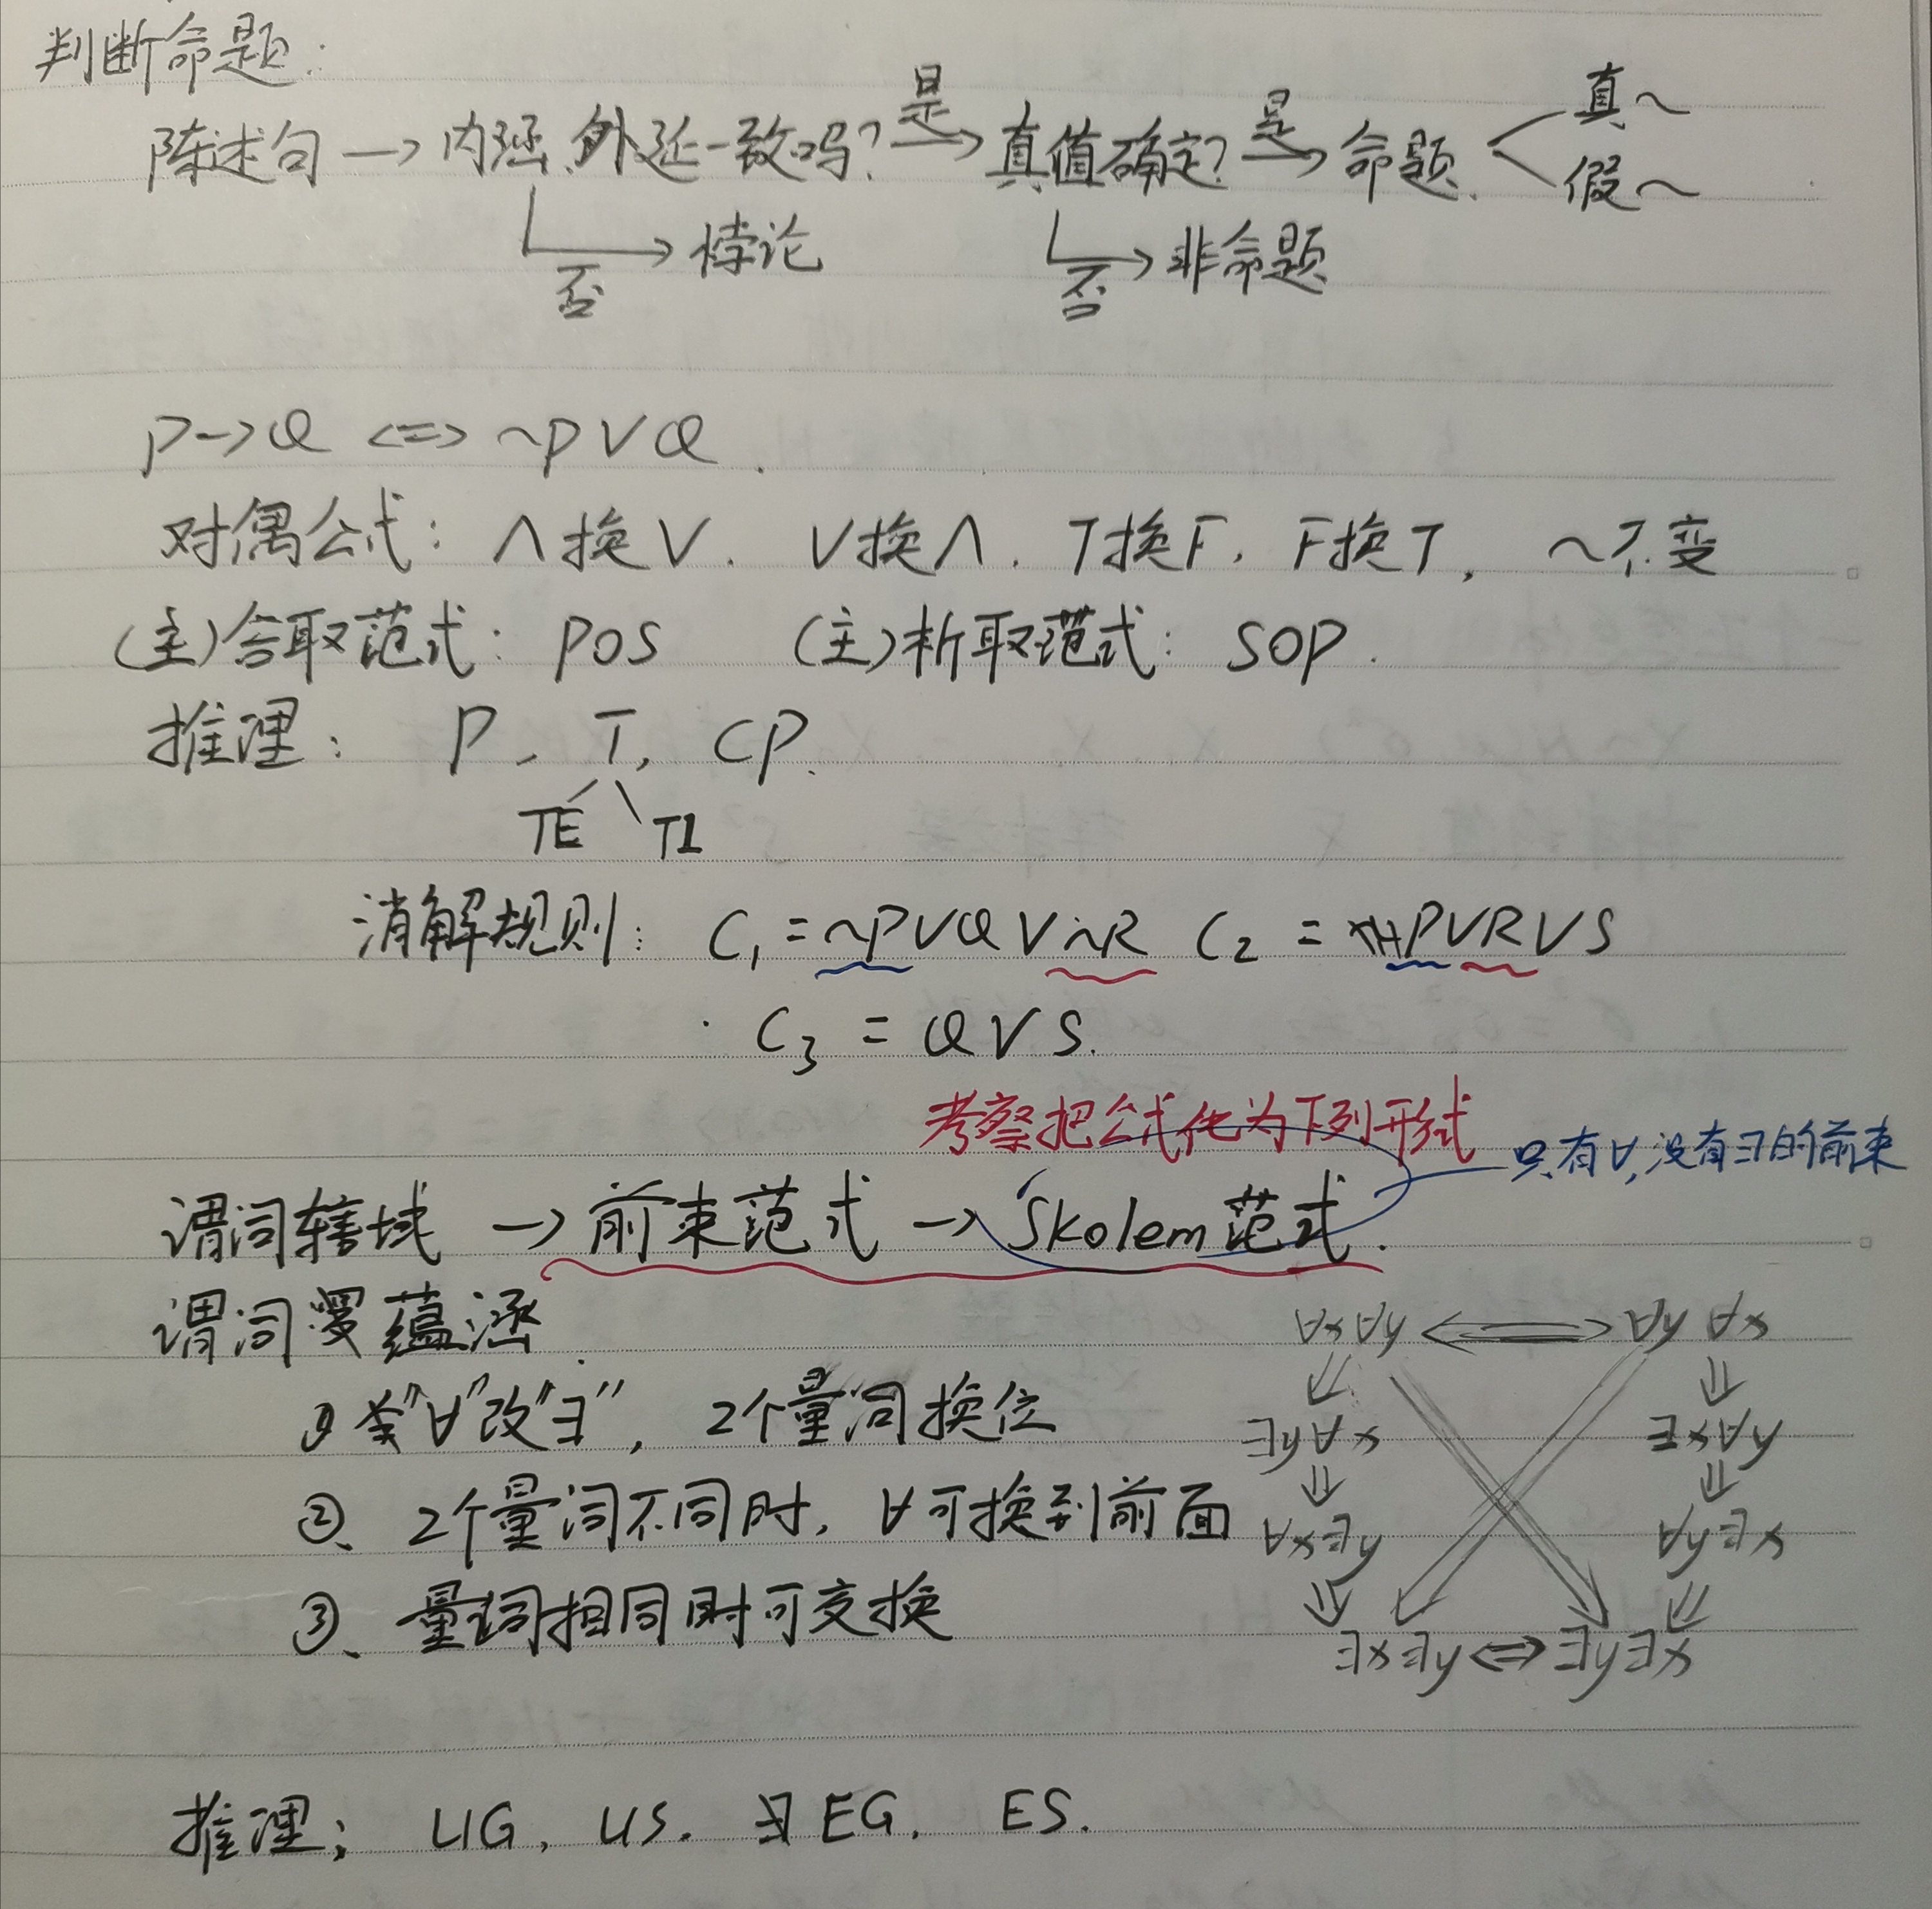 判断命题:
陈述句→内涵、外延一致吗? 是→ 真值确定? 是→ 命题. 真~
假~
否→悖论 否→非命题
P→Q <=> ~P∨Q.
对偶公式: ∧换∨. ∨换∧. T换F, F换T, ~不变
(主)合取范式: POS (主)析取范式: SOP.
推理: P、T, CP.
TE TI
消解规则: C₁=~P∨Q∨~R C₂=P∨R∨S
C₃=Q∨S.
考察把公式化为下列形式
只有∀,没有∃的前束
谓词辖域→前束范式→Skolem范式.
谓词蕴涵
① "∀"改"∃", 2个量词换位
②、2个量词不同时, ∀可换到前面
③、量词相同时可交换
∀x∀y <=> ∀y∀x
⇓ ⇓
∃y∀x ∃x∀y
⇓ ⇓
∀x∃y ∀y∃x
⇓ ⇓
∃x∃y <=> ∃y∃x
推理; UG, US. EG, ES.